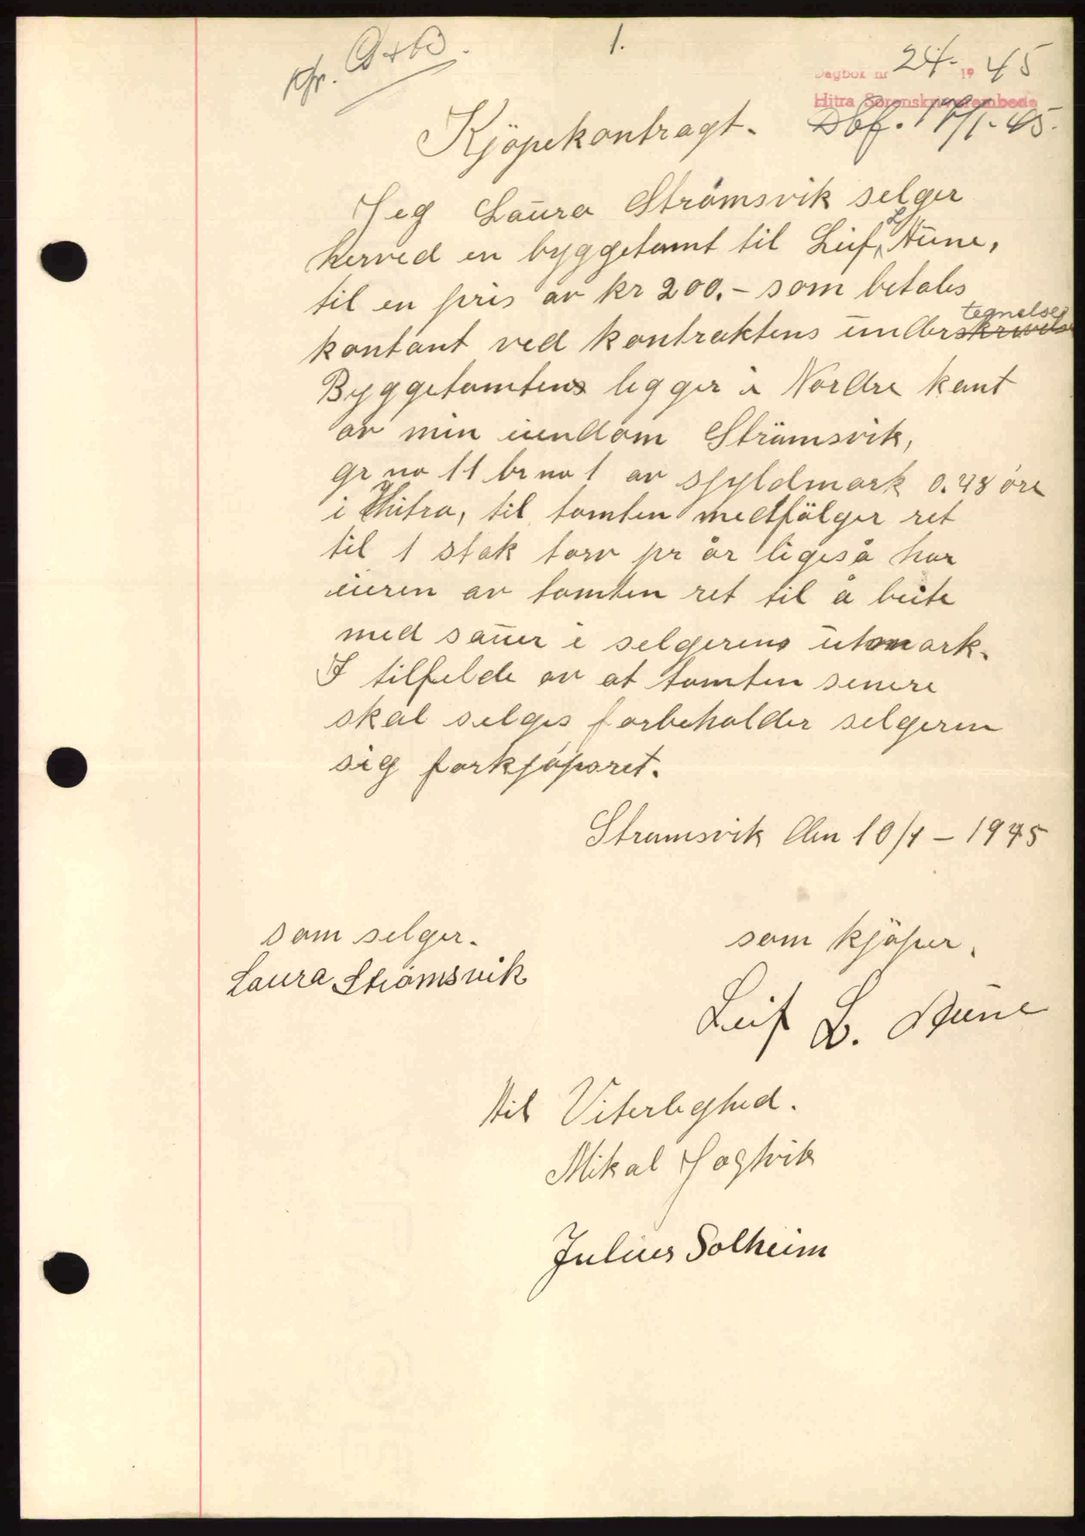 1.
Dagbok nr 24. 1945
Hitra Sorenskriverembede
Dbf. 17/1-45.
Kjöpekontragt.
Jeg Laura Strömsvik selger
herved en byggetomt til Leif L. Aune,
til en pris av kr 200.- som betales
kontant ved kontraktens undertegnelse
Byggetomten ligger i Nordre kant
av min eiendom Strömsvik,
gr no 11 br no 1 av skyldmark 0.48 öre
i Hitra, til tomten medfölger ret
til 1 stak torv pr år ligeså har
eieren av tomten ret til å beite
med sauer i selgerens utmark.
I tilfelde av at tomten senere
skal selges forbeholder selgeren
sig forkjöpsret.
Strömsvik den 10/1 - 1945
som selger.
Laura Strömsvik
som kjöper.
Leif L. Aune
til Viterlighed.
Mikal
Julius Solheim